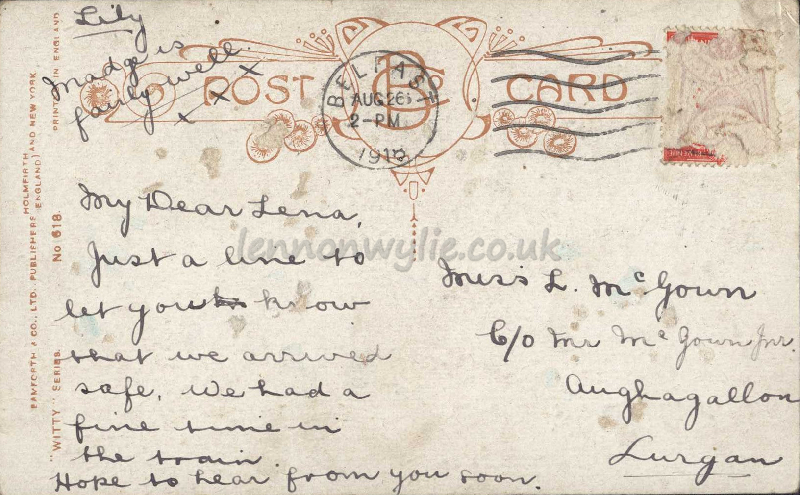 Lily
Madge is
fairly well.
x x x
POST CARD
BELFAST
AUG 26
2-PM
191
My Dear Lena,
Just a line to
let you know
that we arrived
safe. We had a
fine time in
the train.
Hope to hear from you soon.
Miss L. McGown
C/o Mr McGown Jnr.
Aughagallon
Lurgan
lennonwylie.co.uk
BAMFORTH & CO., LTD., PUBLISHERS HOLMFIRTH ENGLAND) AND NEW YORK
"WITTY" SERIES. No 618. PRINTED IN ENGLAND